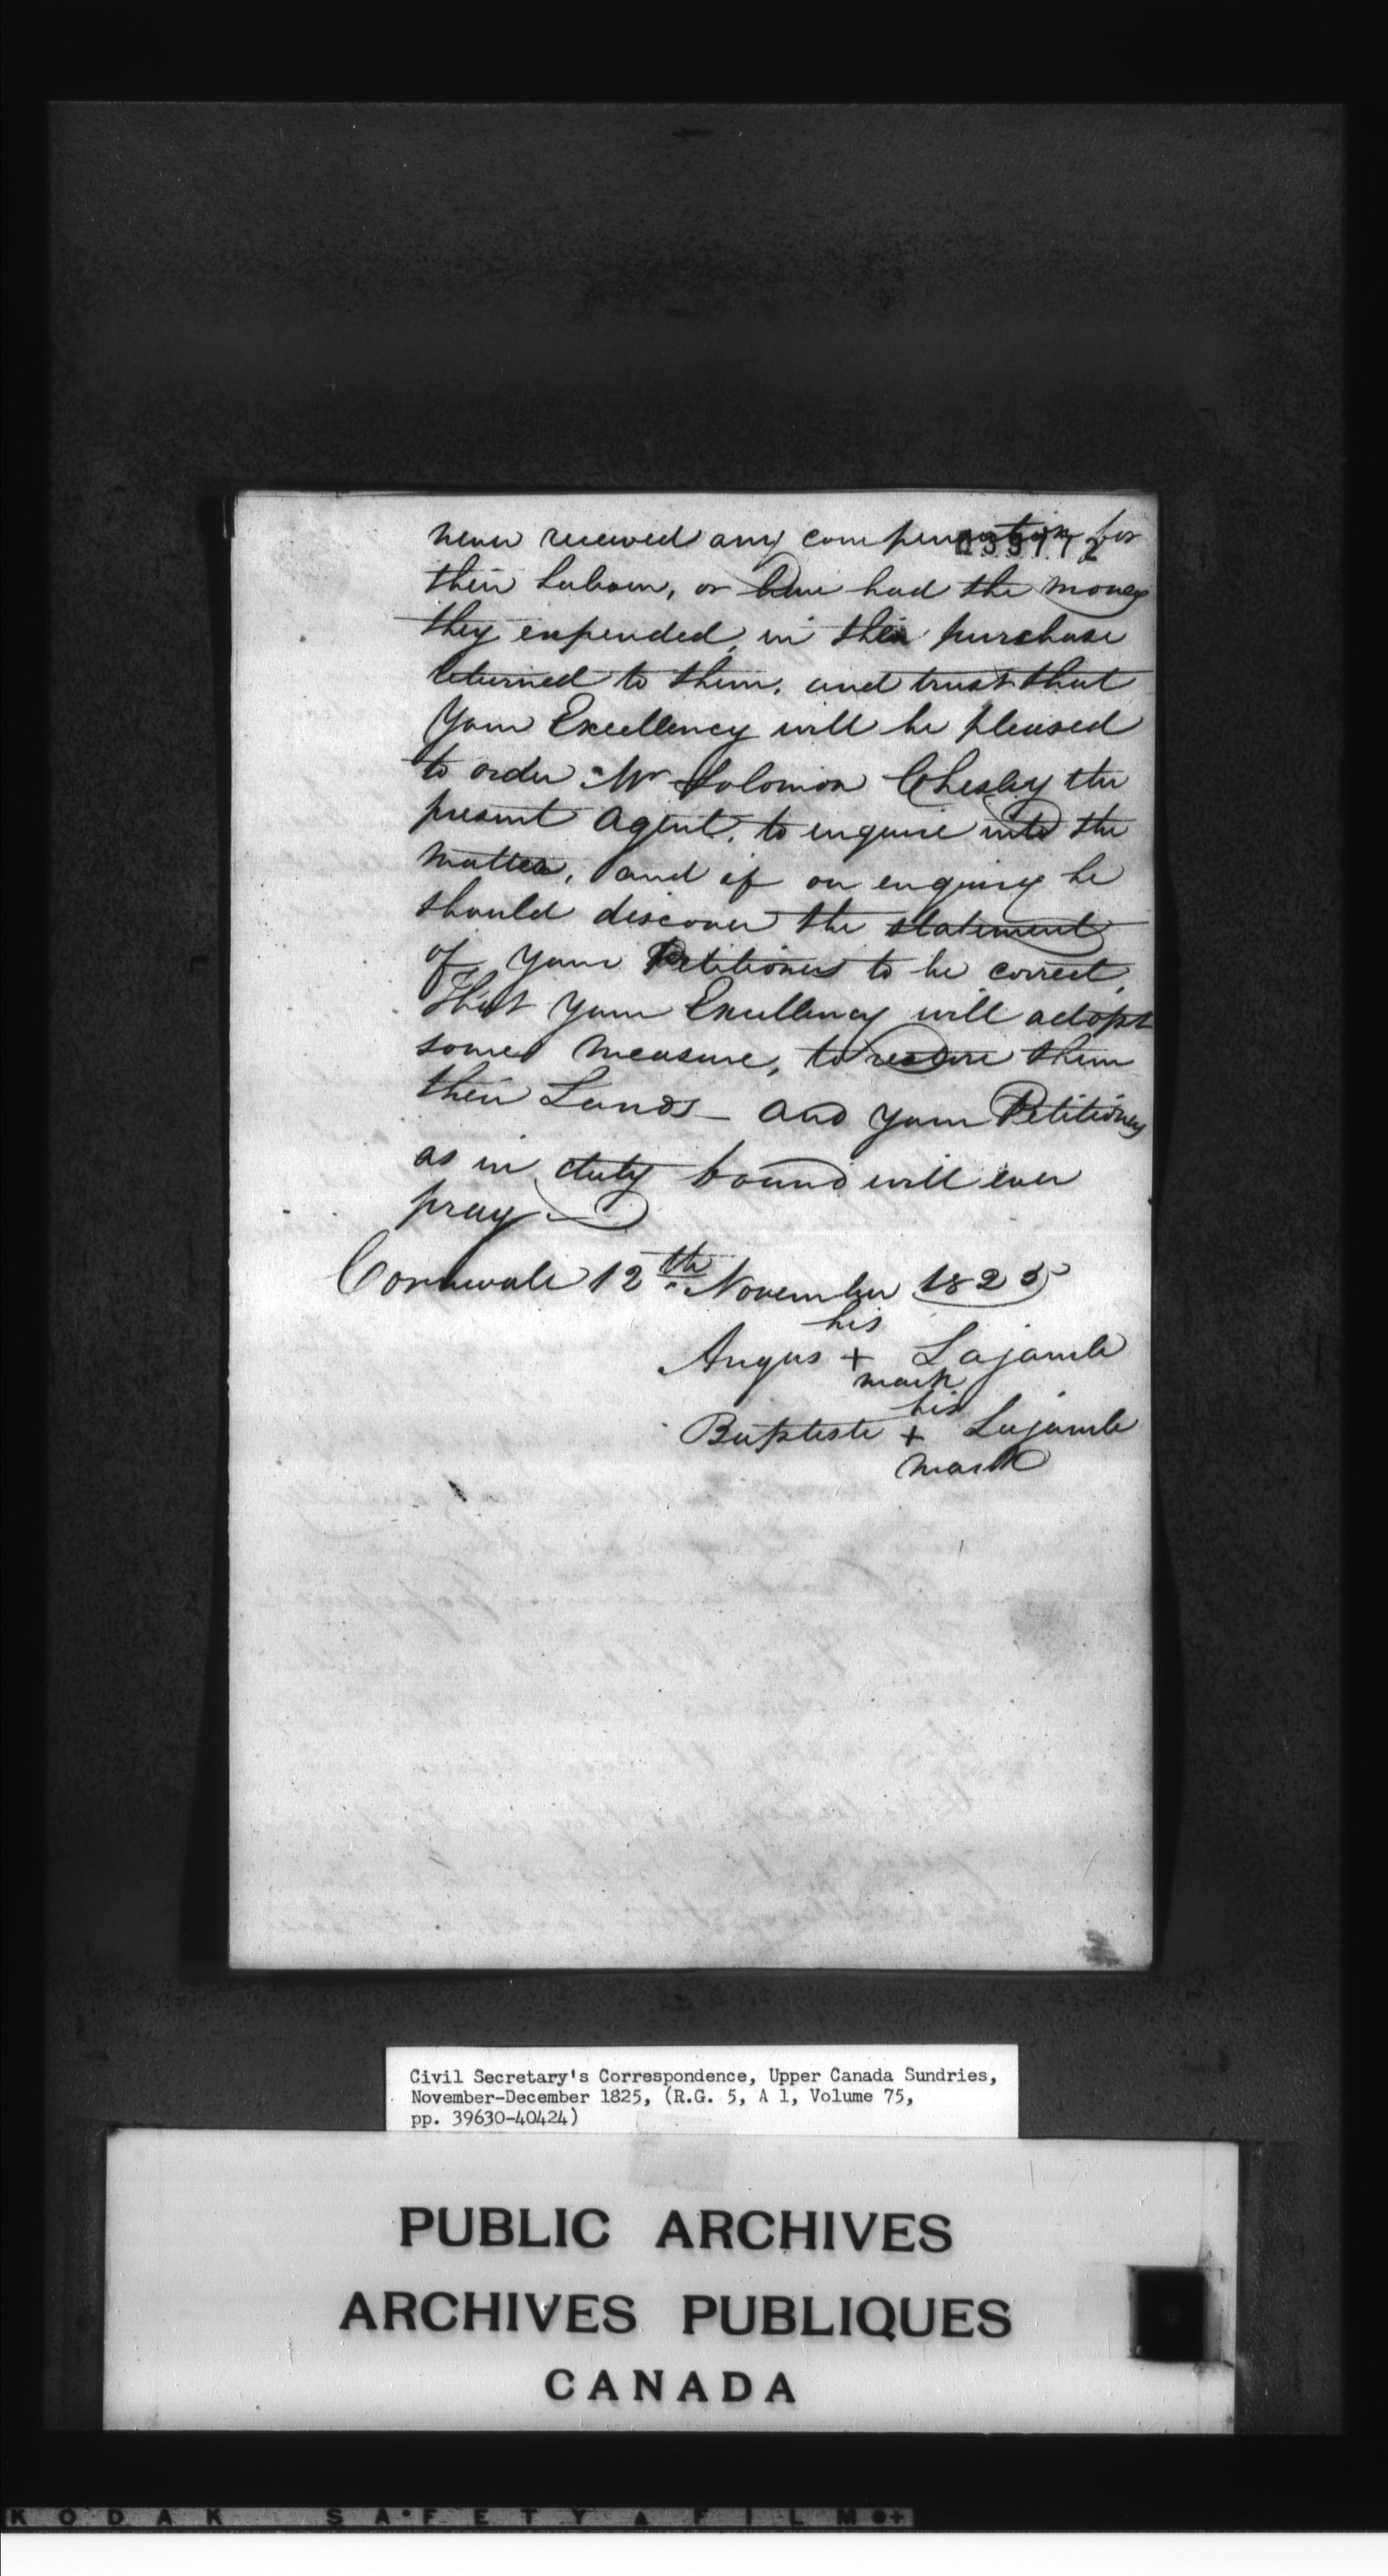 never received any compensation for
039772
their Labour, or have had the money
they expended, in their purchase
returned to them, and trust that
Your Excellency will be pleased
to order Mr Solomon Chesley the
present Agent, to enquire into the
matter, and if on enquiry he
should discover the statement
of your Petitioners to be correct,
that Your Excellency will adopt
some measure, to restore them
their Lands — and your Petitioners
as in duty bound will ever
pray —
Cornwall 12th November 1825
his
Angus + Lajamb
mark
his
Baptiste + Lajamb
mark
Civil Secretary's Correspondence, Upper Canada Sundries,
November-December 1825, (R.G. 5, A 1, Volume 75,
pp. 39630-40424)
PUBLIC ARCHIVES
ARCHIVES PUBLIQUES
CANADA
KODAK SAFETY FILM